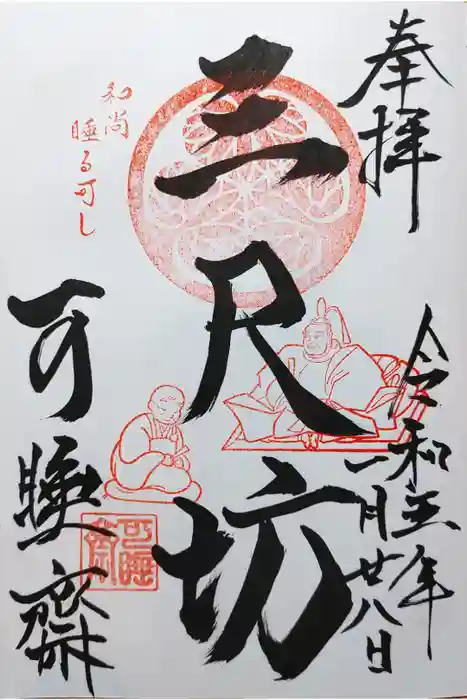 奉拝
令和五年
一月廿八日
三尺坊
和尚
睡る可し
可睡齋
可睡
齋